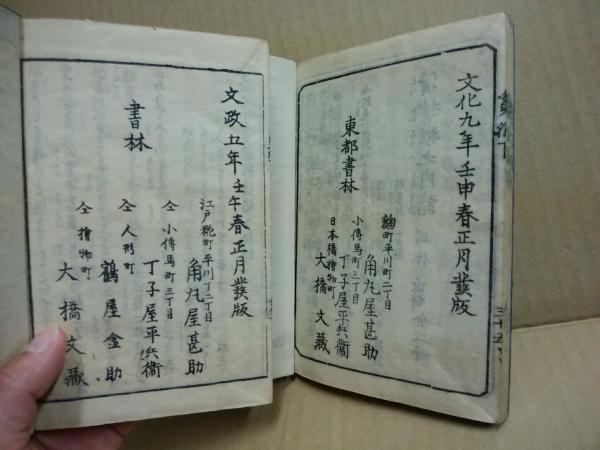 文化九年壬申春正月發版
東都書林
麹町平川町二丁目
角丸屋甚助
小傳馬町三丁目
丁子屋平兵衞
日本橋檜物町
大橋文藏
文政五年壬午春正月發版
書林
江戸糀町平川丁二丁目
角丸屋甚助
仝小傳馬町三丁目
丁子屋平兵衞
仝人形町
鶴屋金助
仝檜物町
大橋文藏